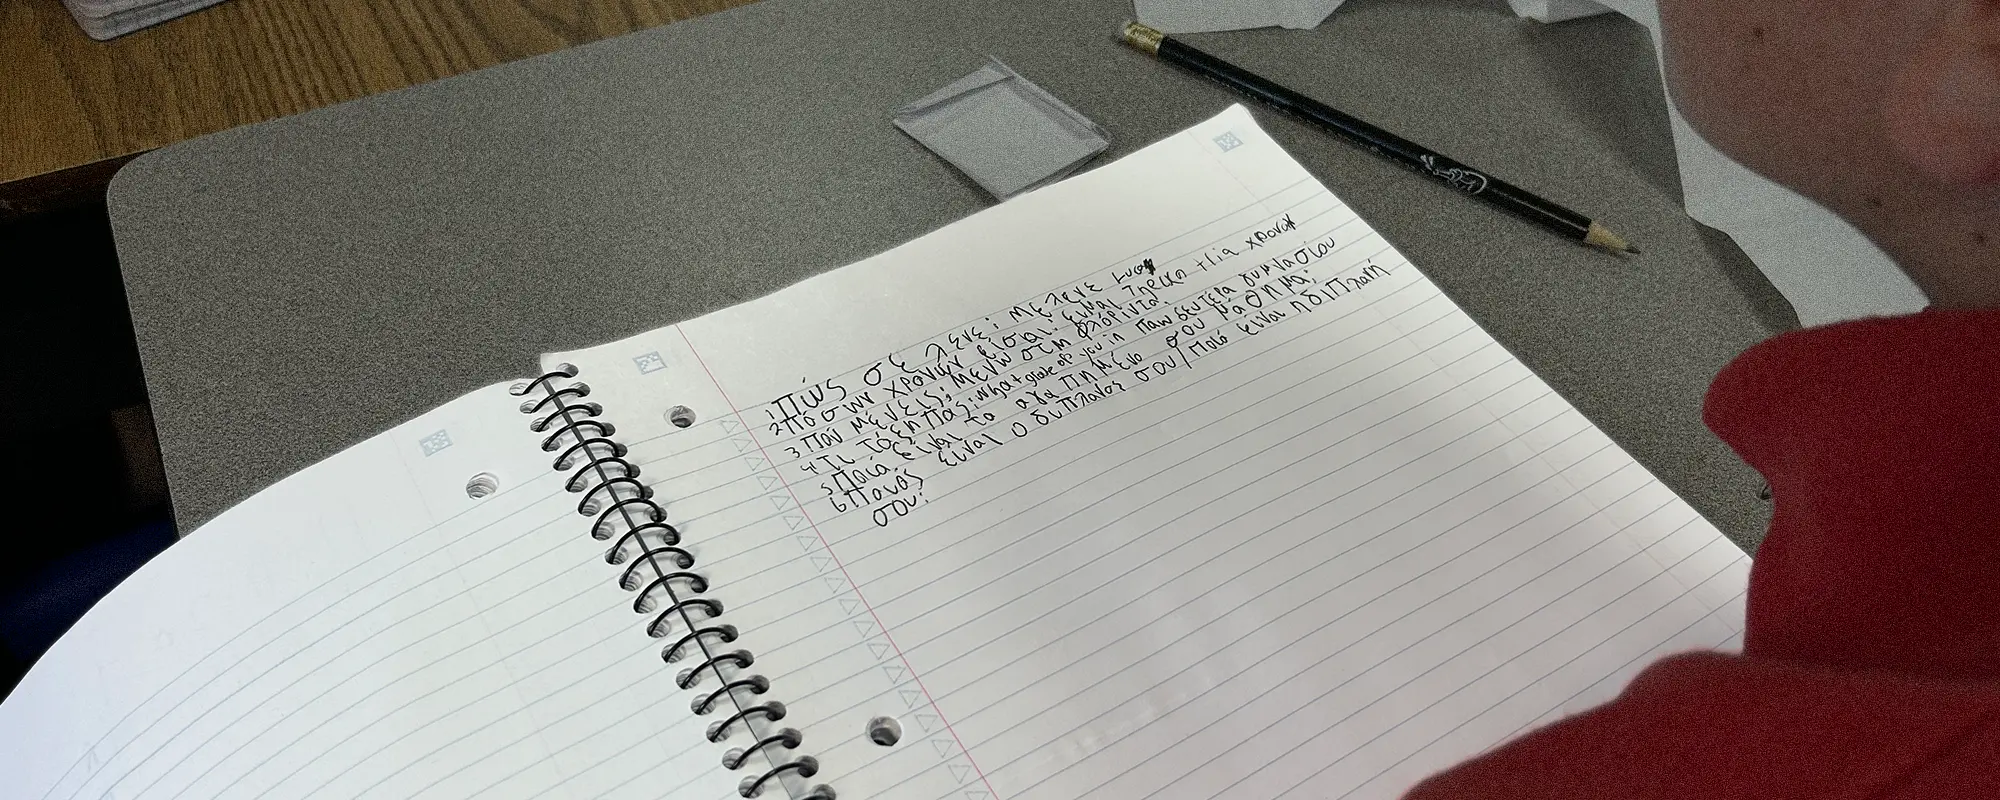 1 Πώς σε λένε; Με λενε Lucas
2 Πόσων χρονών είσαι; είμαι
3 Που μένεις; Μενω στη Φλόριντα.
4 Τι τάξη πας; what grade are you in Παω δευτέρα γυμνασίου
5 Ποιό είναι το αγαπημένο σου μάθημα;
6 Ποιός είναι ο διπλανός σου/ποιό είναι η διπλανή
σου;